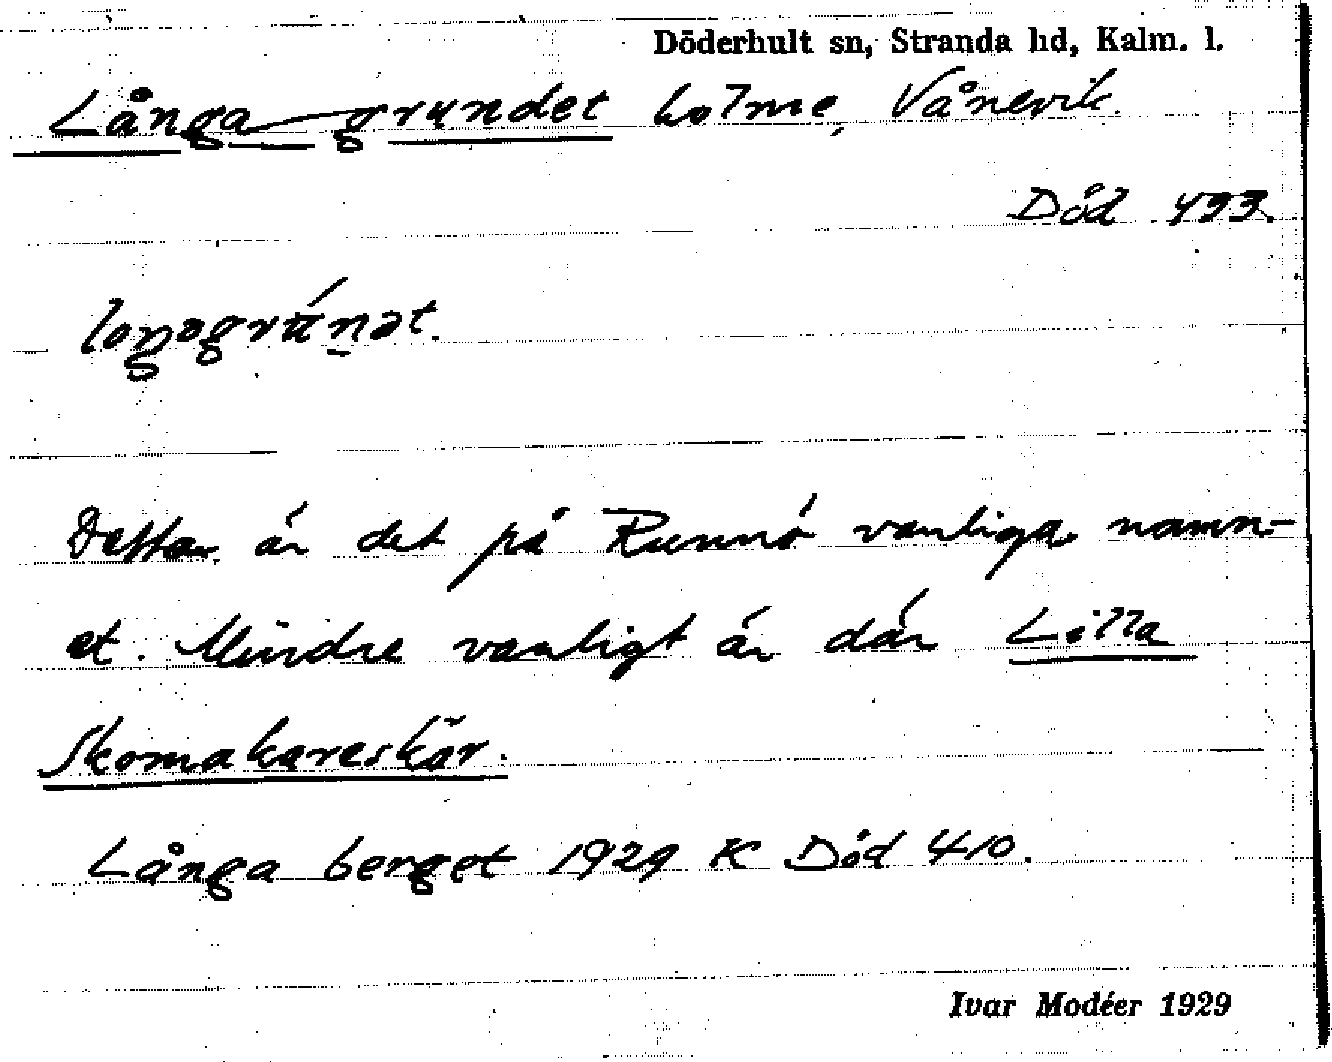 Döderhult sn, Stranda hd, Kalm. l.
Långa grundet holme, Vånevik.
Död 493.
Detta är det på Runnö vanliga namn-
et. Mindre vanligt är där Lilla
Skomakareskär.
Långa berget 1929 K Död 410.
Ivar Modéer 1929